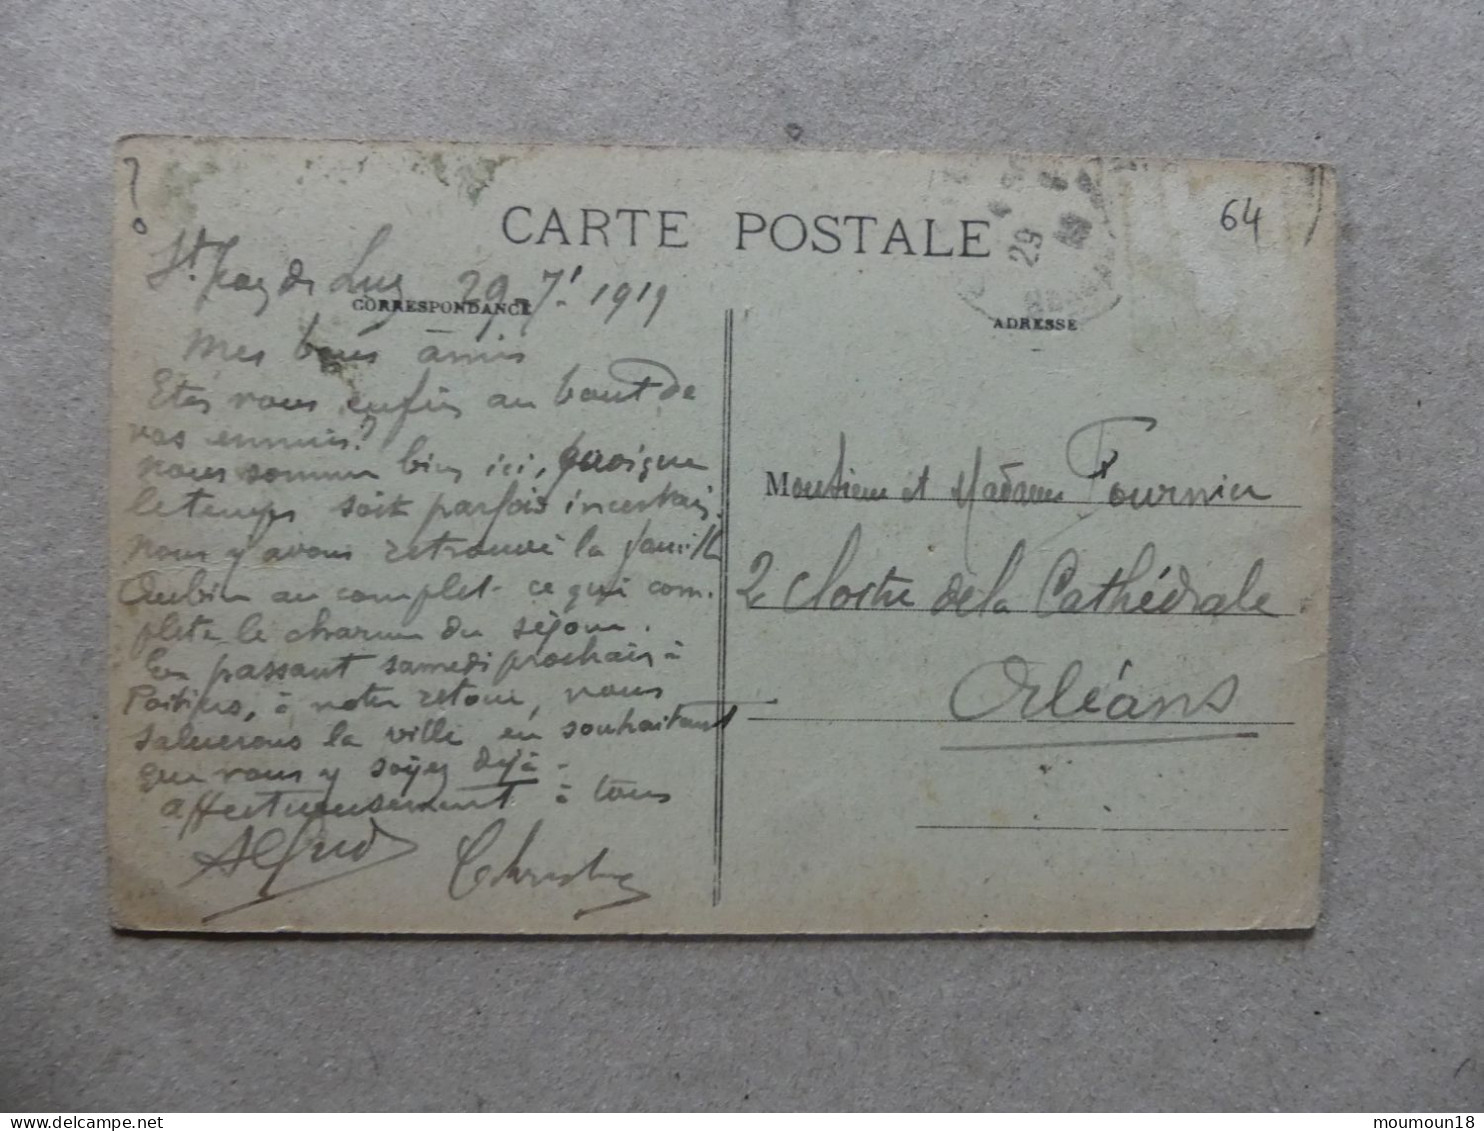 ?
CARTE POSTALE
29
64
St Jean de Luz 29-7t 1919
CORRESPONDANCE
ADRESSE
Mes bons amis
Etes vous enfin au bout de
vos ennuis?
Nous sommes bien ici, quoique
le temps soit parfois incertain.
Nous y avons retrouvé la famille
Aubin au complet - ce qui com-
plète le charme du séjour.
En passant samedi prochain à
Poitiers, à notre retour, nous
saluerons la ville en souhaitant
que vous y soyez déjà -
affectueusement à tous
Alfred
Monsieur et Madame Fournier
2 Cloître de la Cathédrale
Orléans
moumoun18